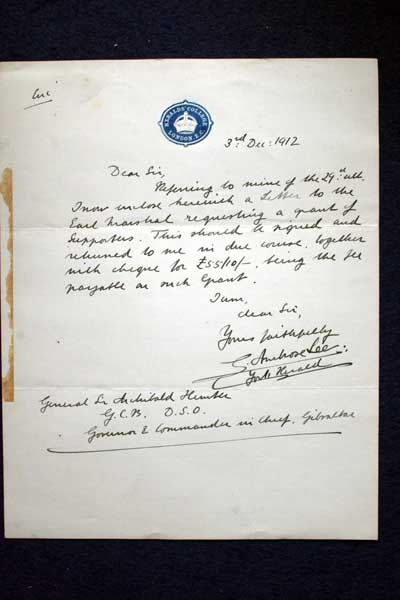 Enc
HERALDS' COLLEGE
LONDON. E.C.
3rd Dec: 1912
Dear Sir,
Referring to mine of the 29th ult.
I now enclose herewith a Letter to the
Earl Marshal requesting a grant of
Supporters. This should be signed and
returned to me in due course, together
with cheque for £55/10/-, being the fee
payable on such Grant.
I am,
dear Sir,
Yours faithfully
G. Ambrose Lee
York Herald
General Sir Archibald Hunter
G.C.B. D.S.O.
Governor & Commander in Chief, Gibraltar